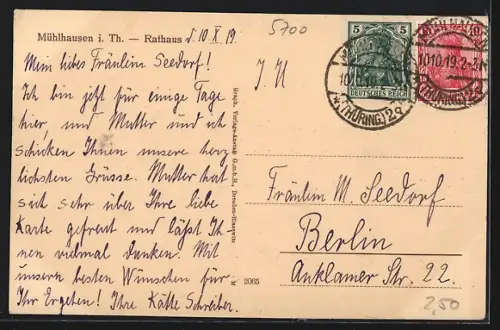 Mühlhausen i. Th. — Rathaus d. 10 X 19
5700
Mein liebes Fräulein Seedorf!
Ich bin jetzt für einige Tage
hier, und Mutter und ich
schicken Ihnen unsere herz
lichsten Grüsse. Mutter hat
sich sehr über Ihre liebe
Karte gefreut und läßt Ih
nen vielmal danken. Mit
unsern besten Wünschen für
Ihr Ergehen! Ihre Käthe Schreiber.
Graph. Verlags-Anstalt G.m.b.H., Dresden-Blasewitz
2065
5 5
DEUTSCHES REICH
10
10.10.19. 2-3
(THÜRING) 2a
(THÜRING) 2a
Fräulein M. Seedorf
Berlin
Anklamer Str. 22.
2,50